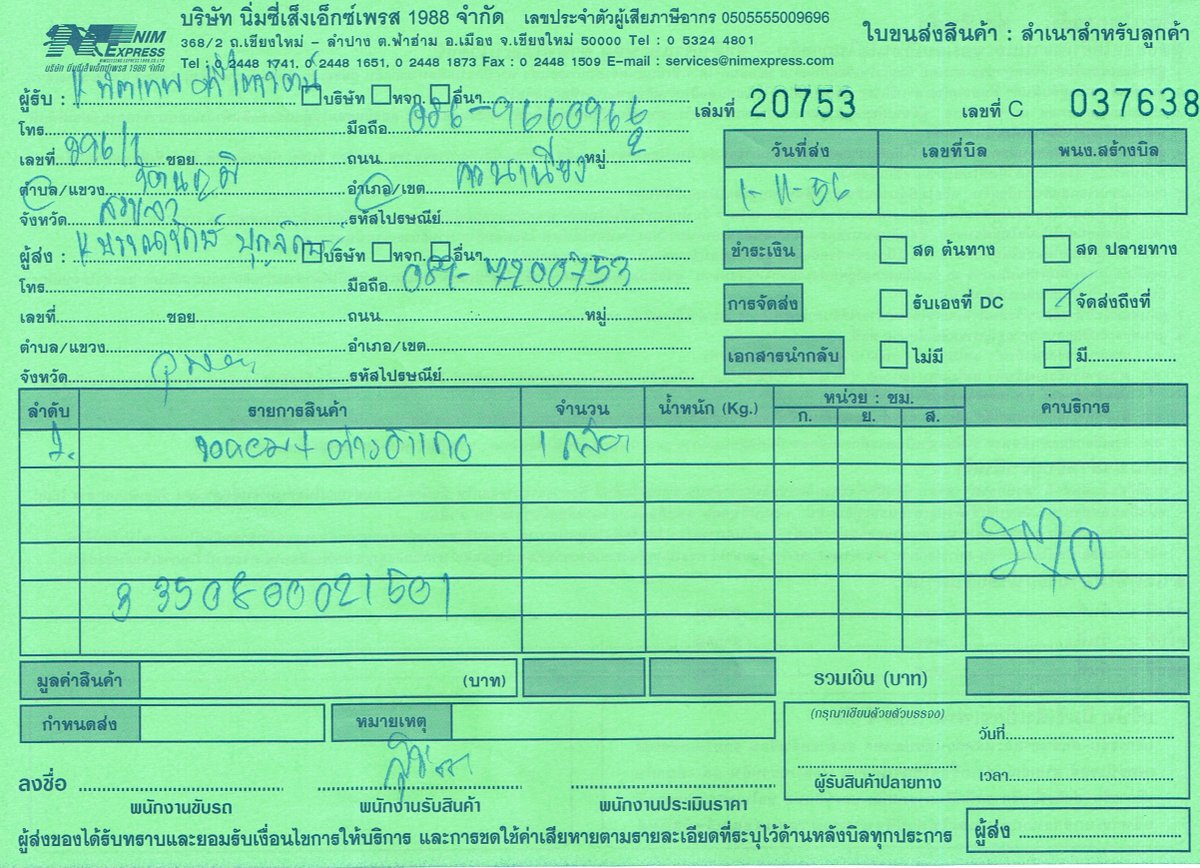 บริษัท นิ่มซี่เส็งเอ็กซ์เพรส 1988 จำกัด เลขประจำตัวผู้เสียภาษีอากร 0505555009696
NIM EXPRESS
บริษัท นิ่มซี่เส็งเอ็กซ์เพรส 1988 จำกัด
368/2 ถ.เชียงใหม่ - ลำปาง ต.ฟ้าฮ่าม อ.เมือง จ.เชียงใหม่ 50000 Tel : 0 5324 4801
Tel : 0 2448 1741, 0 2448 1651, 0 2448 1873 Fax : 0 2448 1509 E-mail : services@nimexpress.com
ใบขนส่งสินค้า : สำเนาสำหรับลูกค้า
ผู้รับ : บริษัท หจก. อื่นๆ
เล่มที่ 20753 เลขที่ C 037638
โทร มือถือ 086-9660966
เลขที่ 896/1 ซอย ถนน หมู่ 2
ตำบล/แขวง รัตภูมิ อำเภอ/เขต ควนเนียง
จังหวัด สงขลา รหัสไปรษณีย์
วันที่ส่ง เลขที่บิล พนง.สร้างบิล
1-11-56
ผู้ส่ง : บริษัท หจก. อื่นๆ
โทร มือถือ 089-7200753
เลขที่ ซอย ถนน หมู่
ตำบล/แขวง อำเภอ/เขต
จังหวัด รหัสไปรษณีย์
ชำระเงิน สด ต้นทาง สด ปลายทาง
การจัดส่ง รับเองที่ DC จัดส่งถึงที่
เอกสารนำกลับ ไม่มี มี
ลำดับ รายการสินค้า จำนวน น้ำหนัก (Kg.) หน่วย : ซม. ค่าบริการ
ก. ย. ส.
1
3 350800021501
มูลค่าสินค้า (บาท) รวมเงิน (บาท)
กำหนดส่ง หมายเหตุ
(กรุณาเขียนด้วยตัวบรรจง)
วันที่
เวลา
ผู้รับสินค้าปลายทาง
ลงชื่อ
พนักงานขับรถ พนักงานรับสินค้า พนักงานประเมินราคา
ผู้ส่งของได้รับทราบและยอมรับเงื่อนไขการให้บริการ และการชดใช้ค่าเสียหายตามรายละเอียดที่ระบุไว้ด้านหลังบิลทุกประการ
ผู้ส่ง